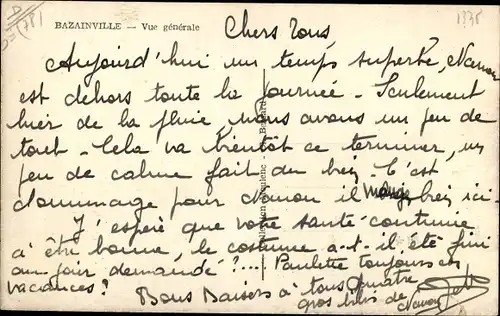 BAZAINVILLE — Vue générale
1938
Chers Tous
Aujourd'hui un temps superbe, Nanou
est dehors toute la journée - Seulement
hier de la pluie, nous avons un peu de
tout - Cela va bientôt ce terminer, un
peu de calme fait du bien - C'est
dommage pour Nanou il mange bien ici -
J'espère que votre santé continue
à être bonne, le costume a-t-il été fini
au jour demandé ?... Paulette toujours en
vacances ?
Bons Baisers à tous quatre
gros bibis de Nanou